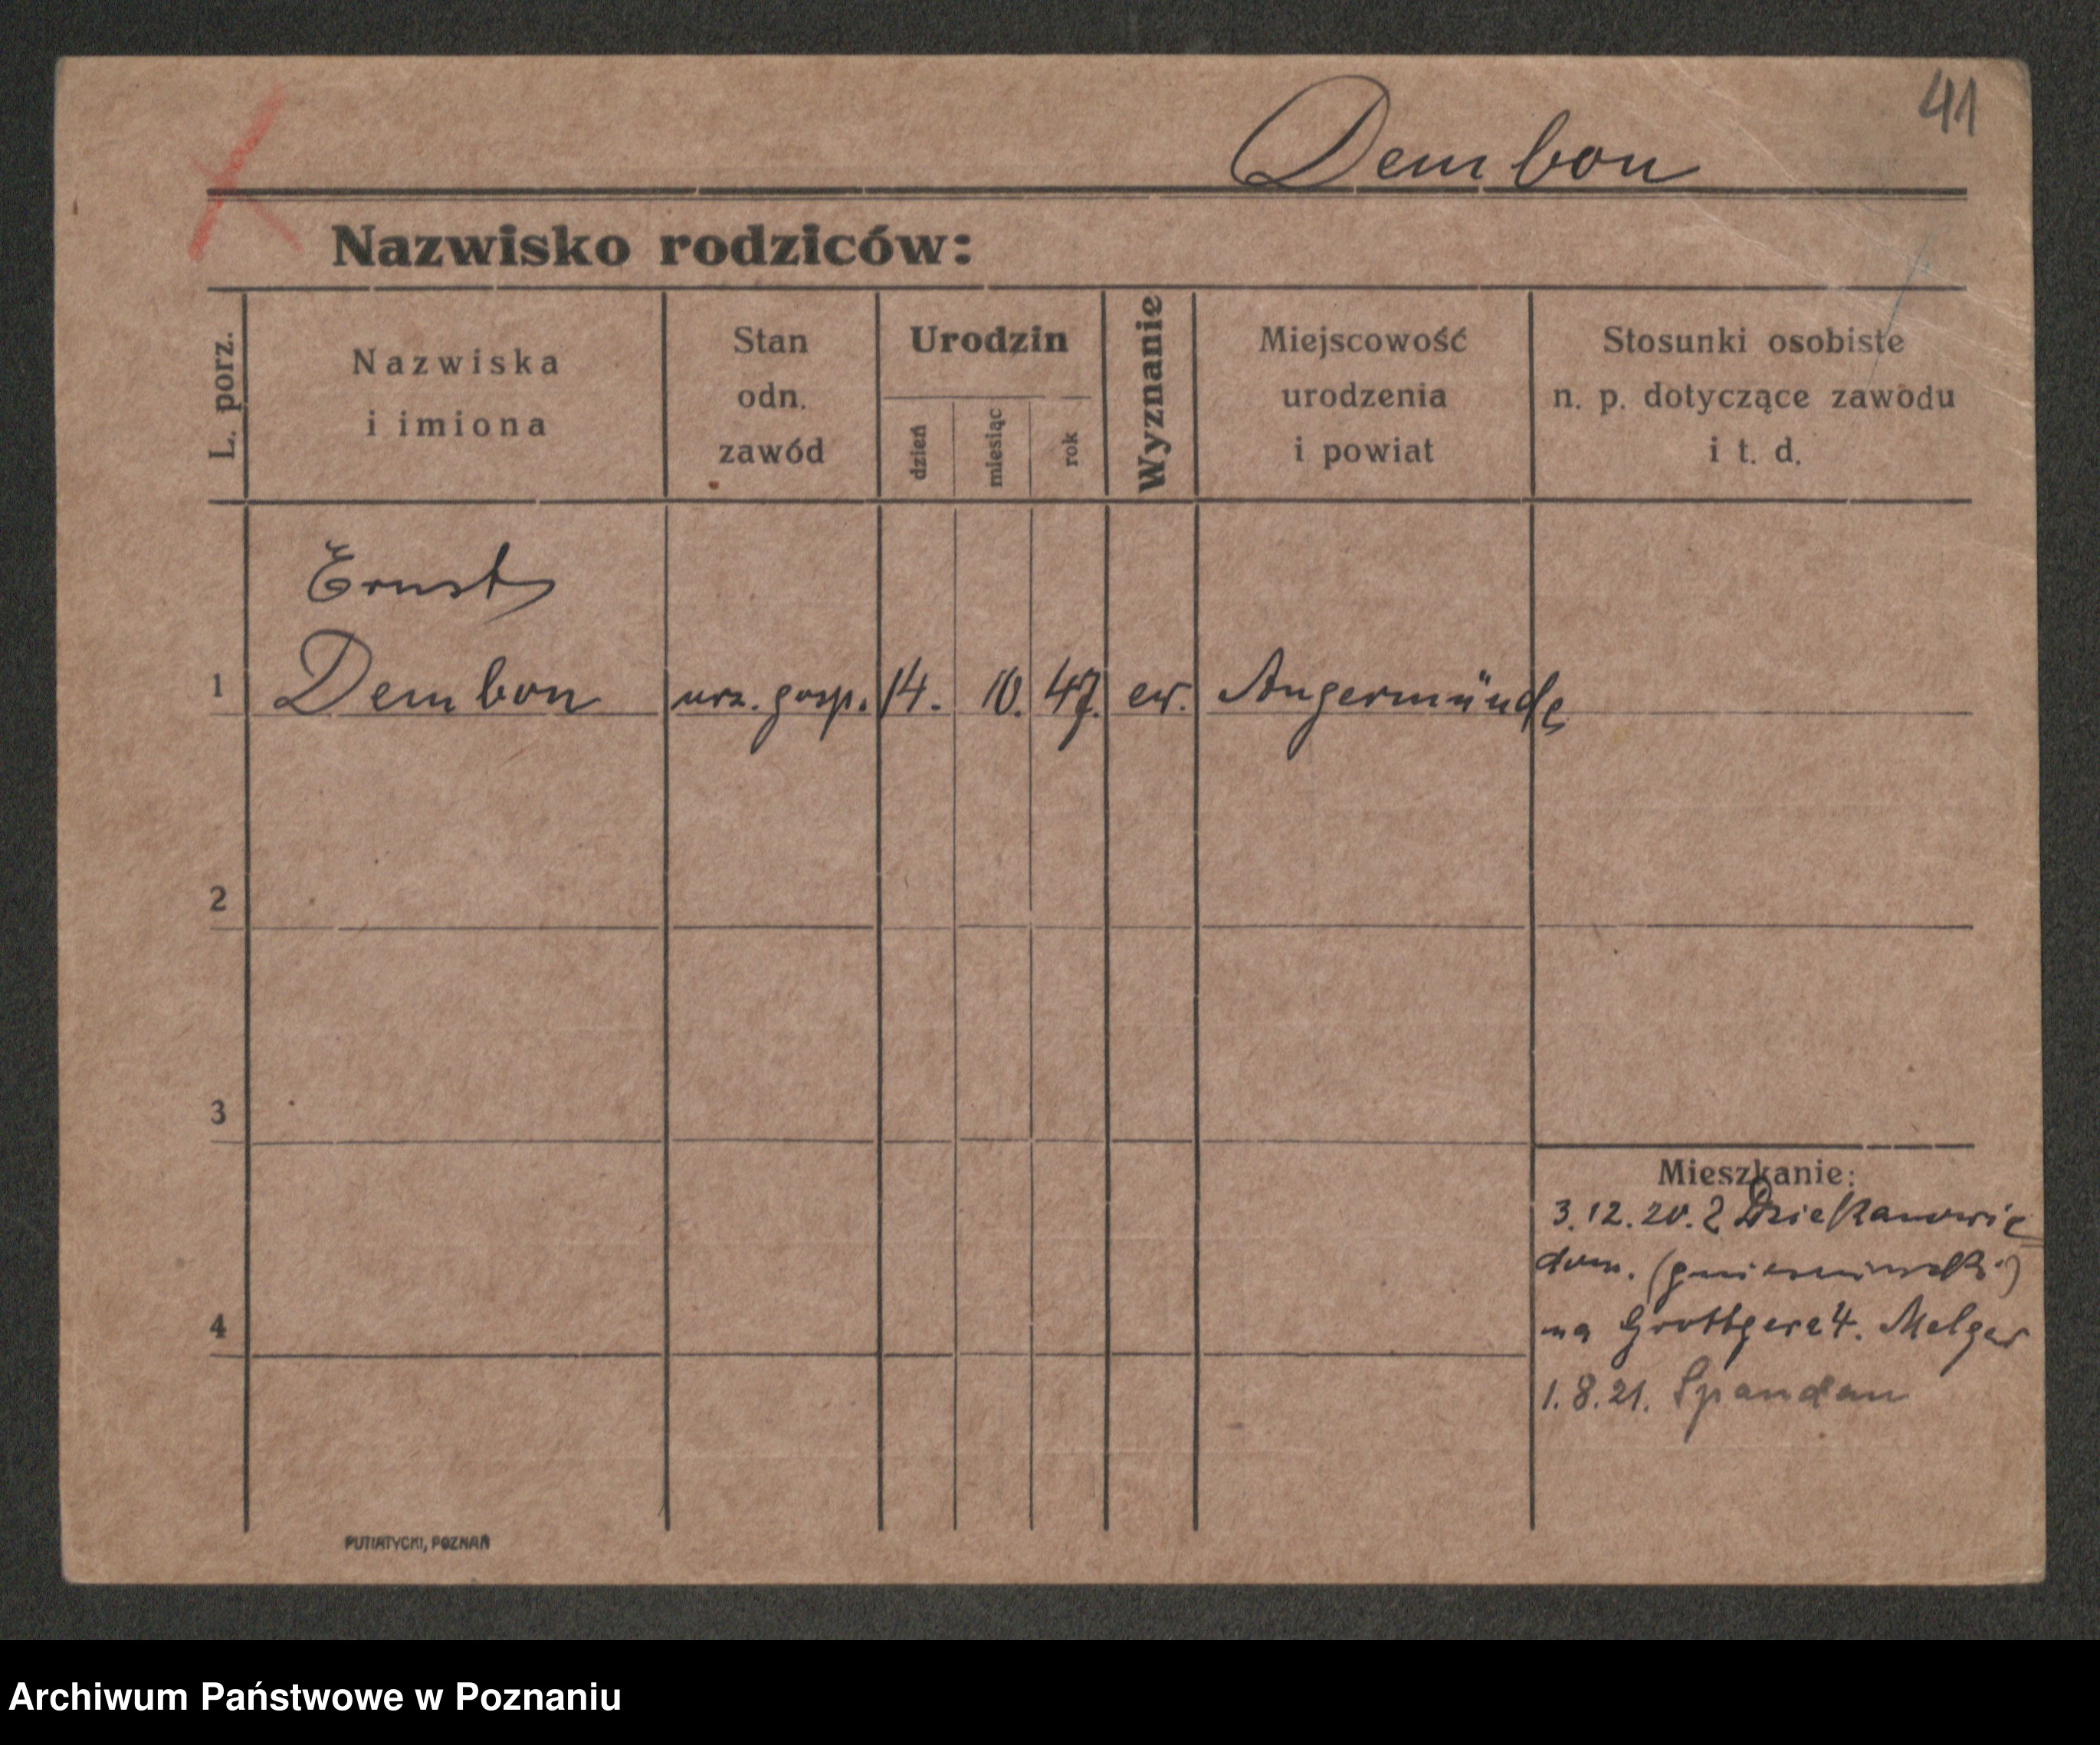 41
Dembon
Nazwisko rodziców:
L. porz.
Nazwiska
i imiona
Stan
odn.
zawód
Urodzin
dzień
miesiąc
rok
Wyznanie
Miejscowość
urodzenia
i powiat
Stosunki osobiste
n. p. dotyczące zawodu
i t. d.
Ernst
1 Dembon urz. gosp. 14. 10. 47. ew. Angermünde
2
3
4
Mieszkanie:
3.12.20. z Dziekanowic
dom. (gnieźnieński)
na Grottgera 4. Melzer
1.8.21. Spandau
PUTIATYCKI, POZNAŃ
Archiwum Państwowe w Poznaniu